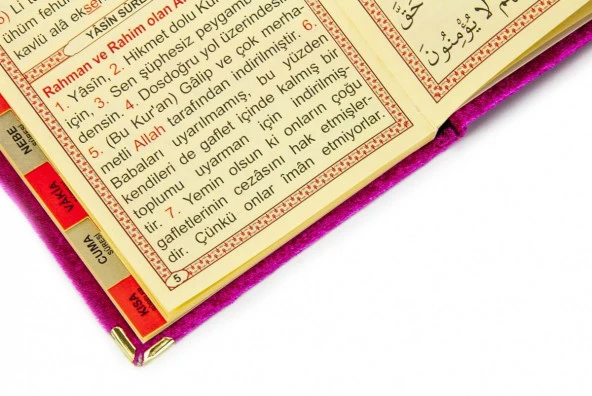 ühüm fehüm
kavlü alâ
YÂSÎN SÛRESİ
Rahman ve Rahim olan
1. Yâsîn, 2. Hikmet dolu
için, 3. Sen şüphesiz peygamber
densin. 4. Dosdoğru yol üzerindesin
5. (Bu Kur'an) Gâlip ve çok merha-
metli Allah tarafından indirilmiştir. 6.
Babaları uyarılmamış, bu yüzden
kendileri de gaflet içinde kalmış bir
toplumu uyarman için indirilmiş-
tir. 7. Yemin olsun ki onların çoğu
gafletlerinin cezasını hak etmişler-
dir. Çünkü onlar îmân etmiyorlar.
5
NEBE
VAKIA
CUMA
SÛRESİ
KISA
حَقَّ
لَا يُؤْمِنُونَ